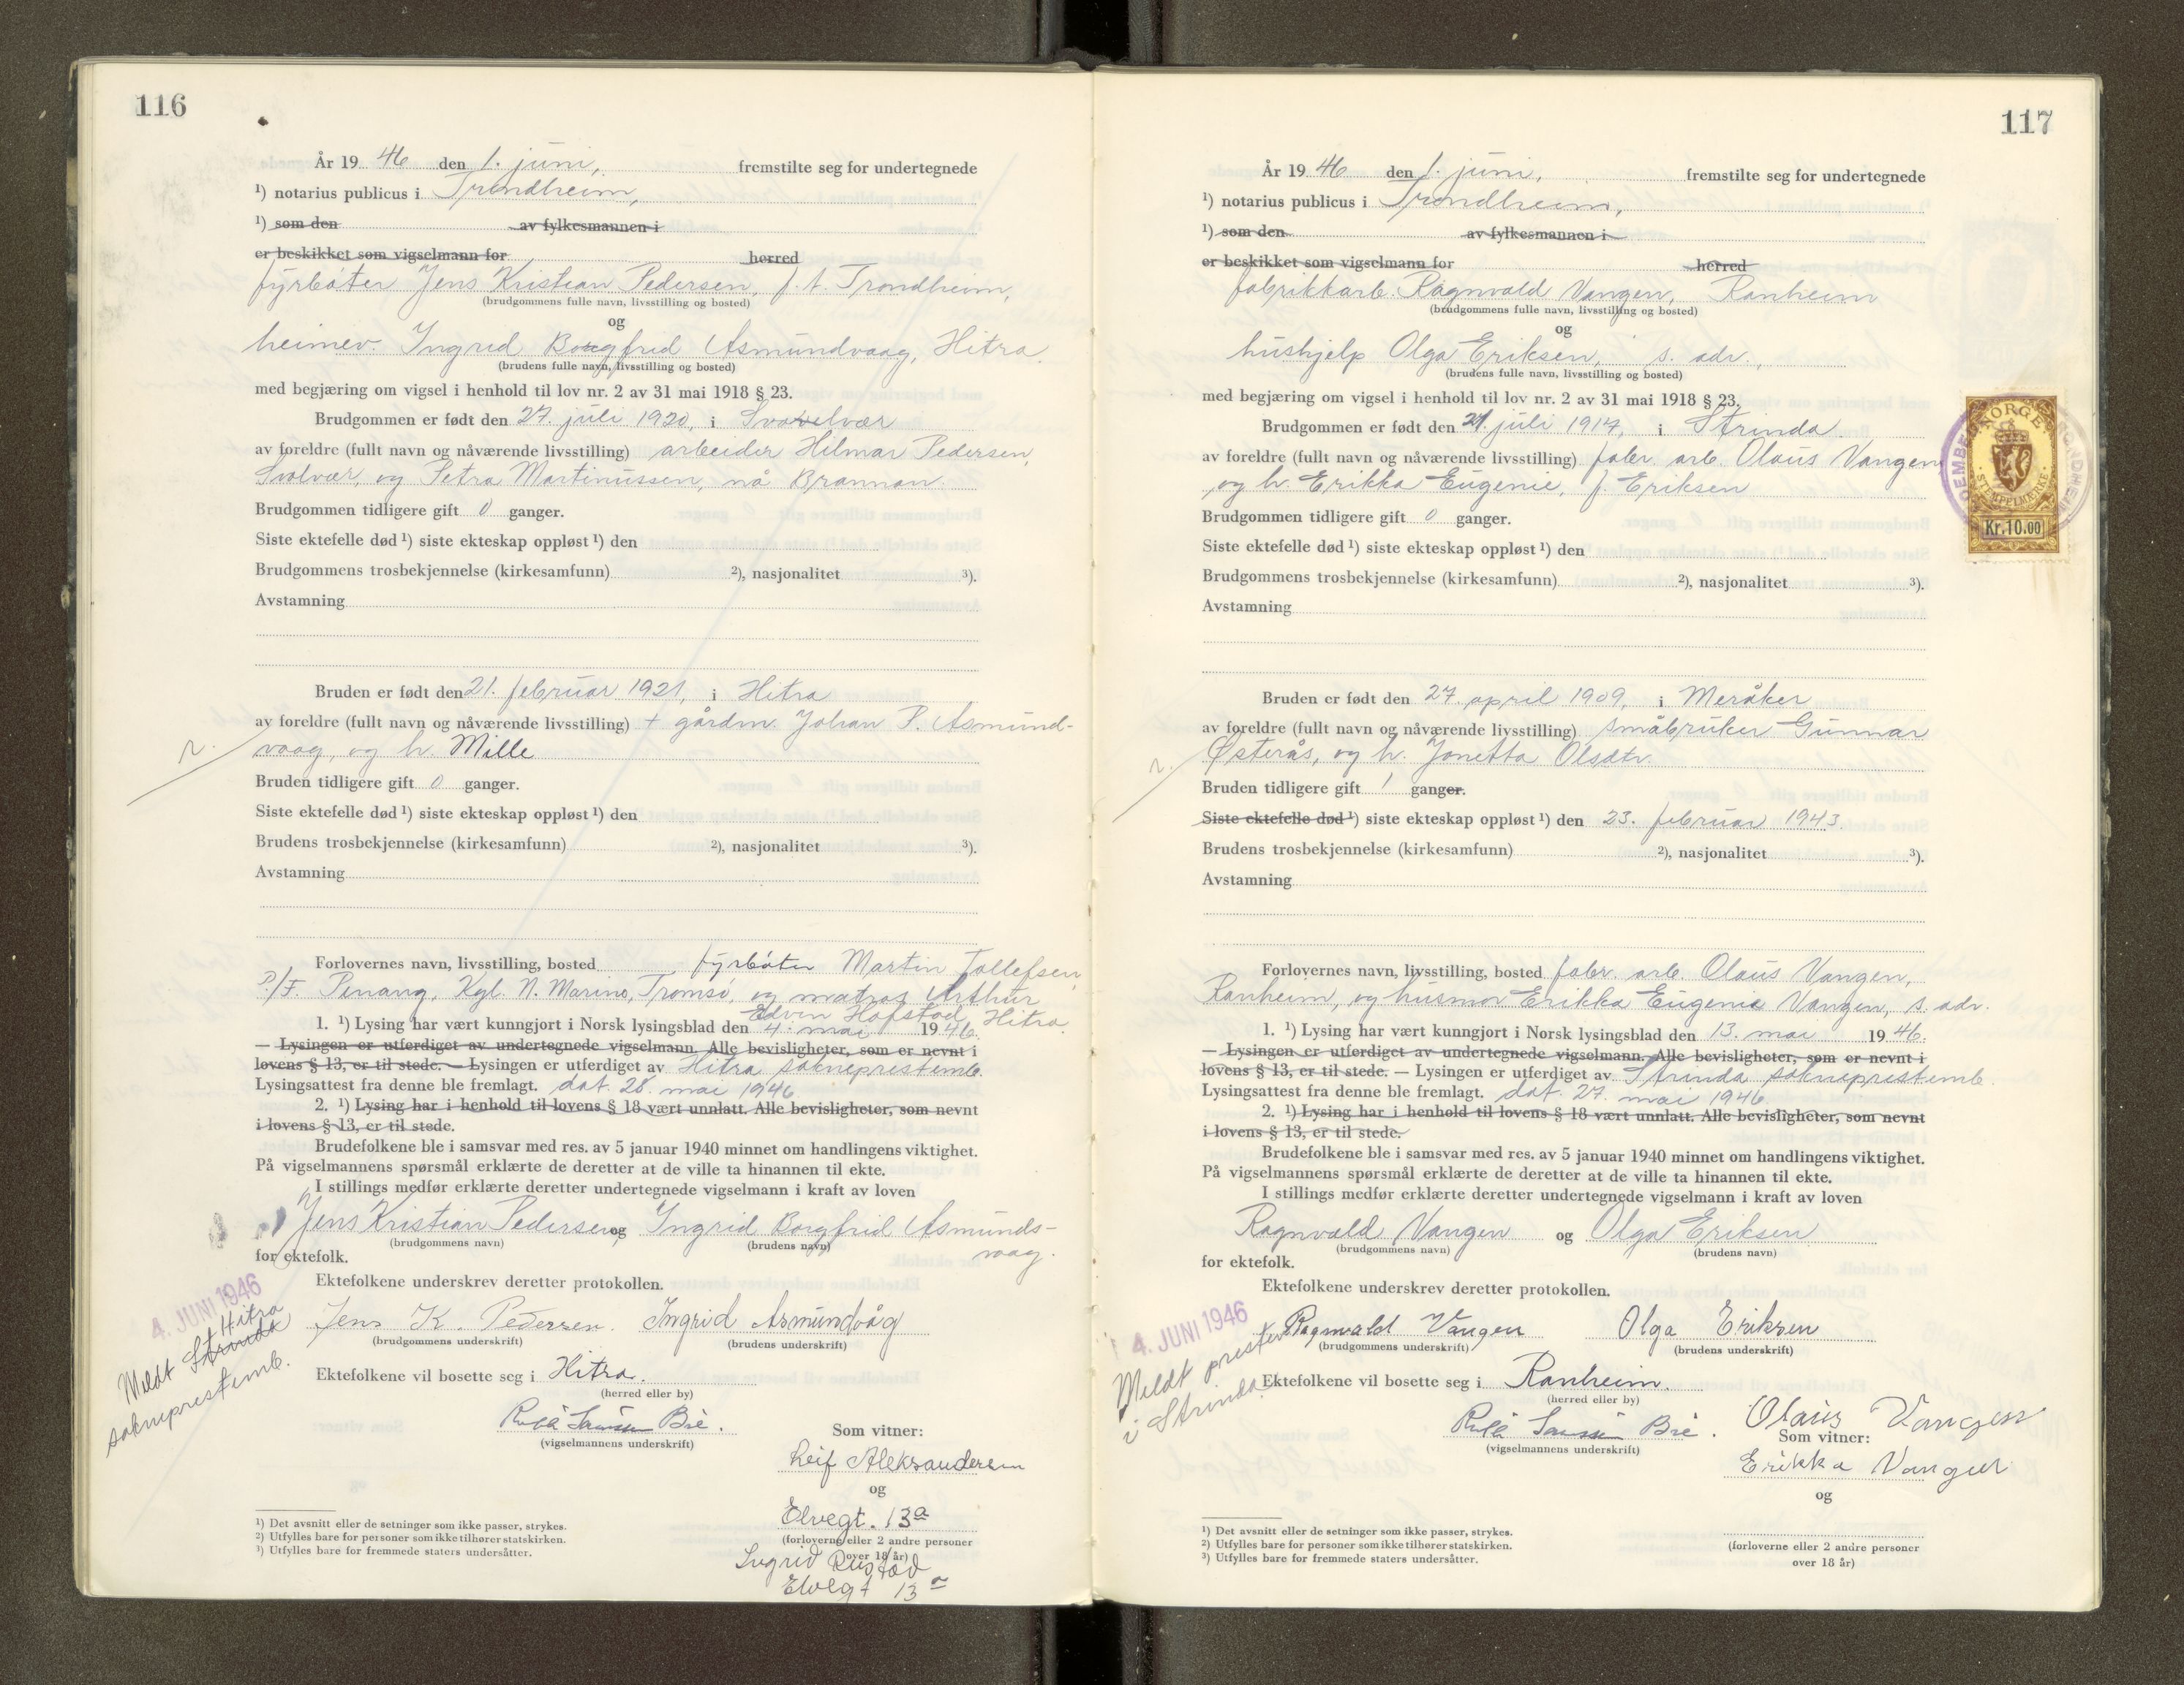 116
År 19 46 den 1. juni, fremstilte seg for undertegnede
¹) notarius publicus i Trondheim,
¹) som den av fylkesmannen i
er beskikket som vigselmann for herred
fyrbøter Jens Kristian Pedersen, f. t. Trondheim,
(brudgommens fulle navn, livsstilling og bosted)
og
heimev. Ingrid Borgfrid Asmundvaag, Hitra.
(brudens fulle navn, livsstilling og bosted)
med begjæring om vigsel i henhold til lov nr. 2 av 31 mai 1918 § 23.
Brudgommen er født den 27. juli 1920, i Svolvær
av foreldre (fullt navn og nåværende livsstilling) arbeider Hilmar Pedersen,
Svolvær, og Petra Martinussen, nå Brannan.
Brudgommen tidligere gift 0 ganger.
Siste ektefelle død ¹) siste ekteskap oppløst ¹) den
Brudgommens trosbekjennelse (kirkesamfunn) ²), nasjonalitet ³).
Avstamning
Bruden er født den 21. februar 1921, i Hitra
av foreldre (fullt navn og nåværende livsstilling) + gårdm. Johan P. Asmund-
vaag, og h. Mille
Bruden tidligere gift 0 ganger.
Siste ektefelle død ¹) siste ekteskap oppløst ¹) den
Brudens trosbekjennelse (kirkesamfunn) ²), nasjonalitet ³).
Avstamning
Forlovernes navn, livsstilling, bosted fyrbøter Martin Tollefsen,
P/F. Penang, Kgl. N. Marine, Tromsø, og matros Arthur
Edvin Hofstad, Hitra.
1. ¹) Lysing har vært kunngjort i Norsk lysingsblad den 4. mai 19 46.
— Lysingen er utferdiget av undertegnede vigselmann. Alle bevisligheter, som er nevnt i
lovens § 13, er til stede. — Lysingen er utferdiget av Hitra sokneprestemb.
Lysingsattest fra denne ble fremlagt. dat. 28. mai 1946
2. ¹) Lysing har i henhold til lovens § 18 vært unnlatt. Alle bevisligheter, som nevnt
i lovens § 13, er til stede.
Brudefolkene ble i samsvar med res. av 5 januar 1940 minnet om handlingens viktighet.
På vigselmannens spørsmål erklærte de deretter at de ville ta hinannen til ekte.
I stillings medfør erklærte deretter undertegnede vigselmann i kraft av loven
Jens Kristian Pedersen og Ingrid Borgfrid Asmunds-
vaag.
(brudgommens navn) (brudens navn)
for ektefolk.
Ektefolkene underskrev deretter protokollen.
4. JUNI 1946
Meldt Strinda Hitra
sokneprestemb.
Jens K. Pedersen. Ingrid Asmundvåg
(brudgommens underskrift) (brudens underskrift)
Ektefolkene vil bosette seg i Hitra.
(herred eller by)
(vigselmannens underskrift)
Som vitner:
Leif Aleksandersen
og
Elvegt. 13a
(forloverne eller 2 andre personer
over 18 år)
Ingrid Rustad
Elvegt 13a
¹) Det avsnitt eller de setninger som ikke passer, strykes.
²) Utfylles bare for personer som ikke tilhører statskirken.
³) Utfylles bare for fremmede staters undersåtter.
117
År 19 46 den 1. juni, fremstilte seg for undertegnede
¹) notarius publicus i Trondheim,
¹) som den av fylkesmannen i
er beskikket som vigselmann for herred
fabrikkarb. Ragnvald Vangen, Ranheim
(brudgommens fulle navn, livsstilling og bosted)
og
hushjelp Olga Eriksen, s. adr.,
(brudens fulle navn, livsstilling og bosted)
med begjæring om vigsel i henhold til lov nr. 2 av 31 mai 1918 § 23.
Brudgommen er født den 21. juli 1914, i Strinda
av foreldre (fullt navn og nåværende livsstilling) fabr. arb. Olaus Vangen
og h. Erikka Eugenie, f. Eriksen
NORGE
STEMPELMERKE
Kr.10.00
Brudgommen tidligere gift 0 ganger.
Siste ektefelle død ¹) siste ekteskap oppløst ¹) den
Brudgommens trosbekjennelse (kirkesamfunn) ²), nasjonalitet ³).
Avstamning
Bruden er født den 27. april 1909, i Meråker
av foreldre (fullt navn og nåværende livsstilling) småbruker Gunnar
Østerås, og h. Jonetta Olsdtr.
Bruden tidligere gift 1 ganger.
Siste ektefelle død ¹) siste ekteskap oppløst ¹) den 23. februar 1943.
Brudens trosbekjennelse (kirkesamfunn) ²), nasjonalitet ³).
Avstamning
Forlovernes navn, livsstilling, bosted fabr. arb. Olaus Vangen,
Ranheim, og husmor Erikka Eugenie Vangen, s. adr.
1. ¹) Lysing har vært kunngjort i Norsk lysingsblad den 13. mai 19 46.
— Lysingen er utferdiget av undertegnede vigselmann. Alle bevisligheter, som er nevnt i
lovens § 13, er til stede. — Lysingen er utferdiget av Strinda sokneprestemb.
Lysingsattest fra denne ble fremlagt. dat. 27. mai 1946.
2. ¹) Lysing har i henhold til lovens § 18 vært unnlatt. Alle bevisligheter, som nevnt
i lovens § 13, er til stede.
Brudefolkene ble i samsvar med res. av 5 januar 1940 minnet om handlingens viktighet.
På vigselmannens spørsmål erklærte de deretter at de ville ta hinannen til ekte.
I stillings medfør erklærte deretter undertegnede vigselmann i kraft av loven
Ragnvald Vangen og Olga Eriksen
(brudgommens navn) (brudens navn)
for ektefolk.
Ektefolkene underskrev deretter protokollen.
4. JUNI 1946
Meldt presten
i Strinda
Ragnvald Vangen Olga Eriksen
(brudgommens underskrift) (brudens underskrift)
Ektefolkene vil bosette seg i Ranheim.
(herred eller by)
(vigselmannens underskrift)
Olaus Vangen
Som vitner:
Erikka Vangen
og
(forloverne eller 2 andre personer
over 18 år)
¹) Det avsnitt eller de setninger som ikke passer, strykes.
²) Utfylles bare for personer som ikke tilhører statskirken.
³) Utfylles bare for fremmede staters undersåtter.